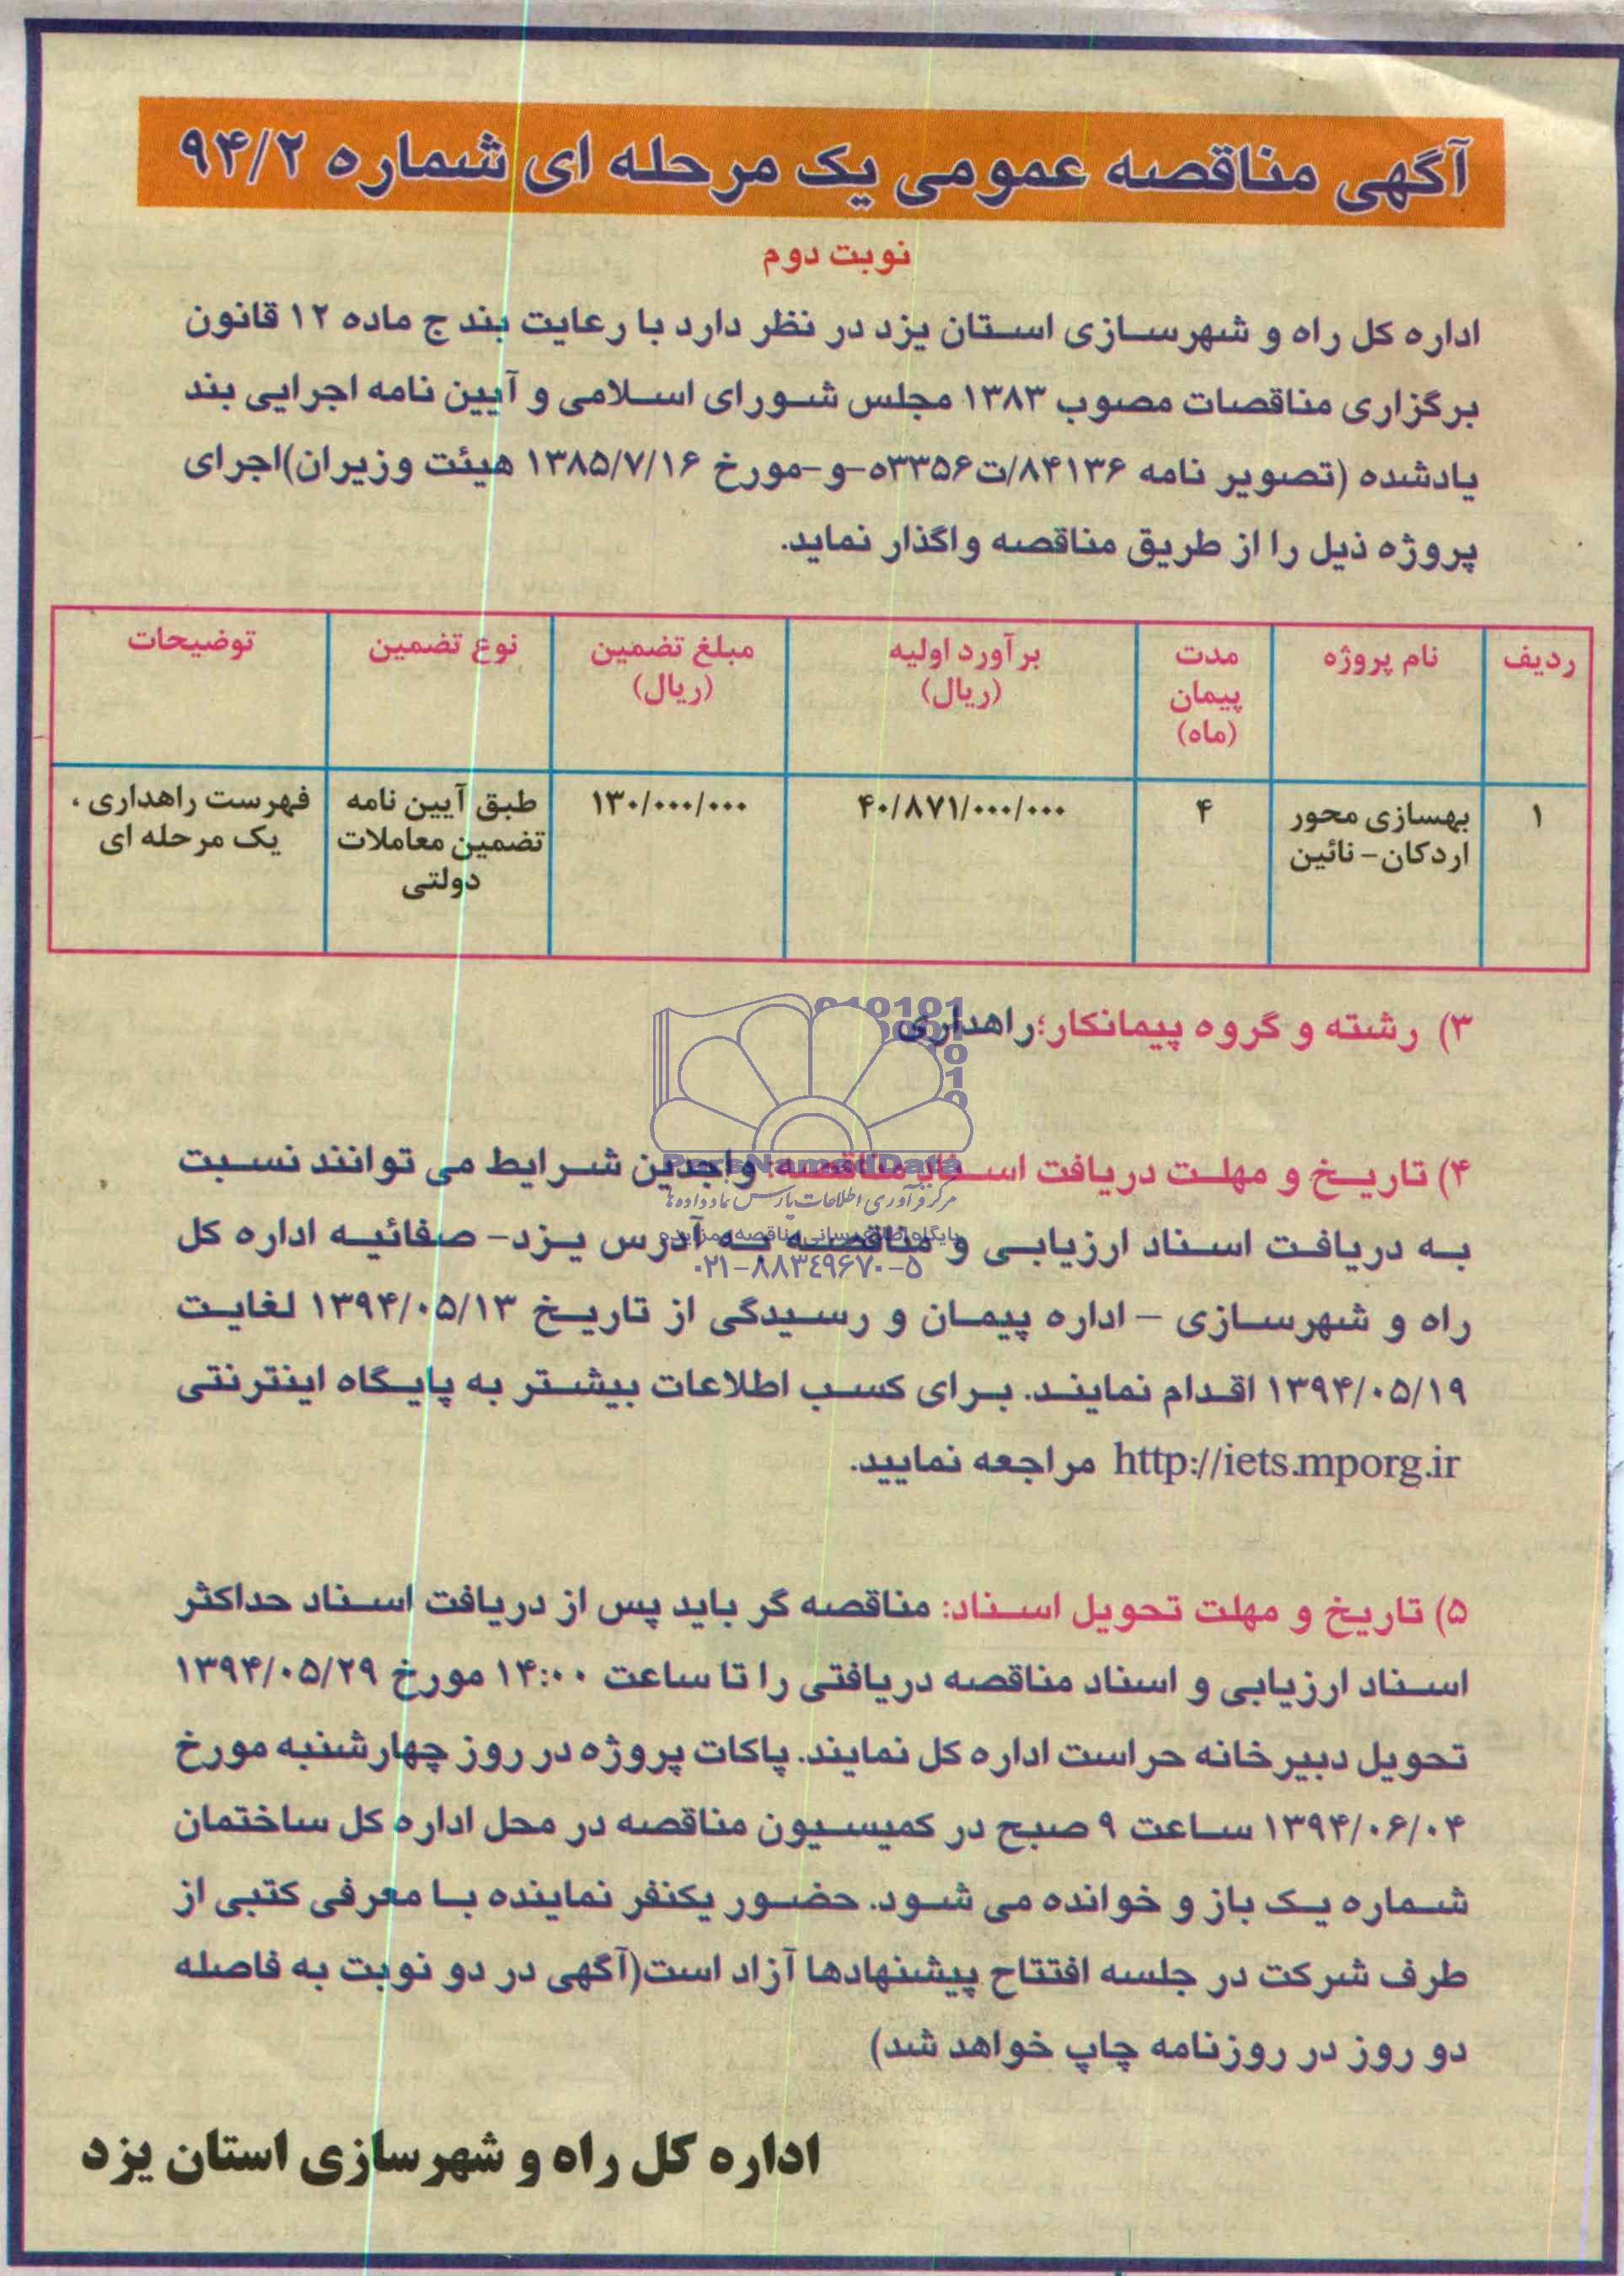 آگهی مناقصه عمومی یک مرحله ای شماره ۹۴/۲
نوبت دوم
اداره کل راه و شهرسازی استان یزد در نظر دارد با رعایت بند ج ماده ۱۲ قانون
برگزاری مناقصات مصوب ۱۳۸۳ مجلس شورای اسلامی و آیین نامه اجرایی بند
یادشده (تصویر نامه ۸۴۱۳۶/ت۳۳۵۶ه-و-مورخ ۱۳۸۵/۷/۱۶ هیئت وزیران)اجرای
پروژه ذیل را از طریق مناقصه واگذار نماید.
ردیف نام پروژه مدت پیمان (ماه) برآورد اولیه (ریال) مبلغ تضمین (ریال) نوع تضمین توضیحات
۱ بهسازی محور اردکان- نائین ۴ ۴۰/۸۷۱/۰۰۰/۰۰۰ ۱۳۰/۰۰۰/۰۰۰ طبق آیین نامه تضمین معاملات دولتی فهرست راهداری ، یک مرحله ای
۳) رشته و گروه پیمانکار؛راهداری
۴) تاریخ و مهلت دریافت اسناد مناقصه: واجدین شرایط می توانند نسبت
به دریافت اسناد ارزیابی و مناقصه به آدرس یزد- صفائیه اداره کل
راه و شهرسازی – اداره پیمان و رسیدگی از تاریخ ۱۳۹۴/۰۵/۱۳ لغایت
۱۳۹۴/۰۵/۱۹ اقدام نمایند. برای کسب اطلاعات بیشتر به پایگاه اینترنتی
http://iets.mporg.ir مراجعه نمایید.
۵) تاریخ و مهلت تحویل اسناد: مناقصه گر باید پس از دریافت اسناد حداکثر
اسناد ارزیابی و اسناد مناقصه دریافتی را تا ساعت ۱۴:۰۰ مورخ ۱۳۹۴/۰۵/۲۹
تحویل دبیرخانه حراست اداره کل نمایند. پاکات پروژه در روز چهارشنبه مورخ
۱۳۹۴/۰۶/۰۴ ساعت ۹ صبح در کمیسیون مناقصه در محل اداره کل ساختمان
شماره یک باز و خوانده می شود. حضور یکنفر نماینده با معرفی کتبی از
طرف شرکت در جلسه افتتاح پیشنهادها آزاد است(آگهی در دو نوبت به فاصله
دو روز در روزنامه چاپ خواهد شد)
اداره کل راه و شهرسازی استان یزد
ParsNamadData
مرکز فرآوری اطلاعات پارس نماد داده ها
پایگاه اطلاع رسانی مناقصه و مزایده
۰۲۱-۸۸۳۴۹۶۷۰-۵